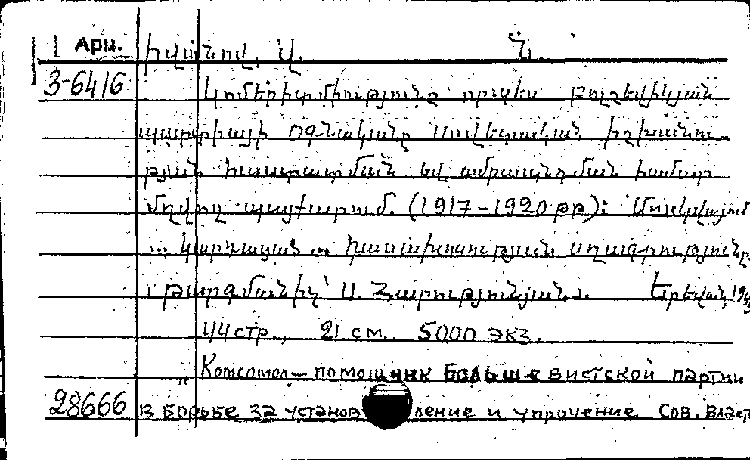 Арм. Իվանով, Վ. Ն.
3-6416 Կոմերիտմիությունը որպես բոլշևիկյան
պարտիայի օգնականը սովետական իշխանու-
թյան հաստատման և ամրապնդման համար
մղվող պայքարում. (1917-1920 թթ): Մոսկվայում
կարդացած հասարակության
թարգմանիչ՝ Ս. Հարությունյան. Երևան,
44 стр., 21 см. 5000 экз.
„Комсомол — помощник большевистской партии
28666 в борьбе за установление и упрочение Сов. Власт